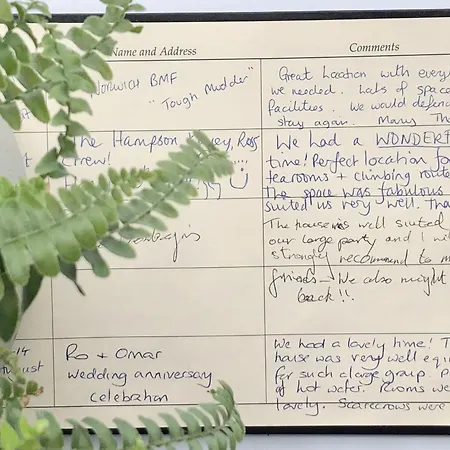 Name and Address
Comments
Norwich BMF
"Tough Mudder"
Great Location with every
we needed. Lots of space
facilities. We would
stay again. Many
The Hampson
Crew!
We had a
time! Perfect location fo
tearooms + climbing route
The space was fabulous
suited us very well.
The house is well suited
our large party and I wi
strongly recommend to m
friends - We also might
back!!
14
ust
Ro + Omar
Wedding anniversary
celebration
We had a lovely time! T
house was very well equi
for such a large group. P
of hot water. Rooms we
lovely. Scarecrows were